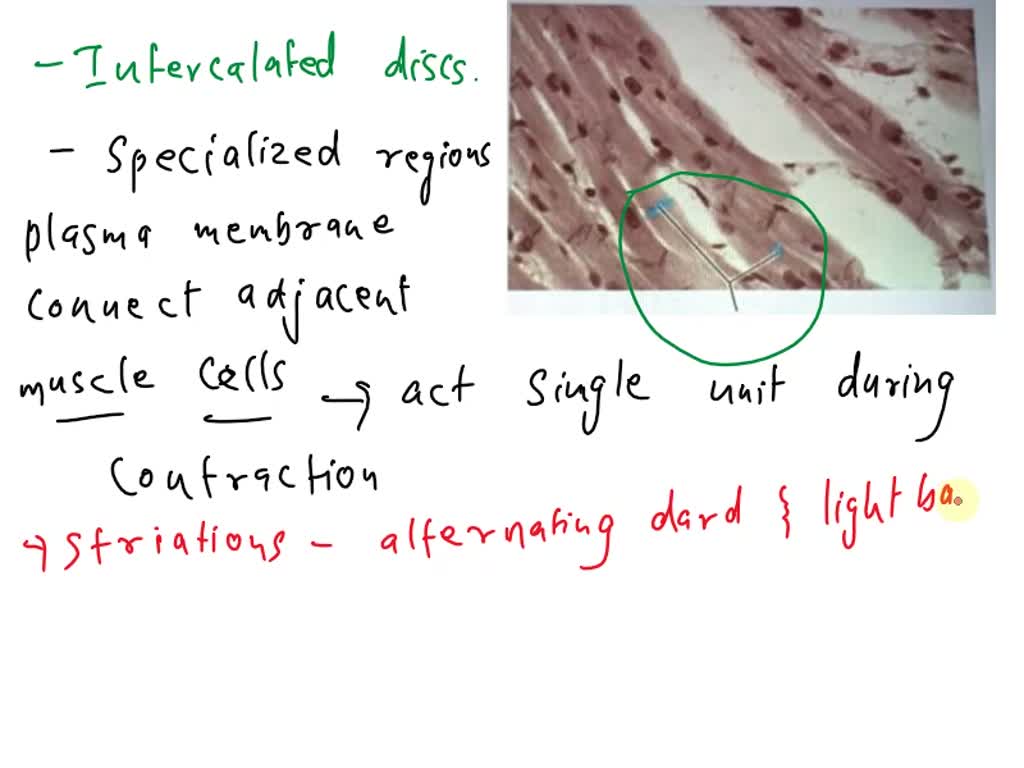 - Intercalated discs.
- Specialized regions
plasma menbrane
connect adjacent
muscle cells → act single unit during
contraction
→ striations - alternating dard & light ba